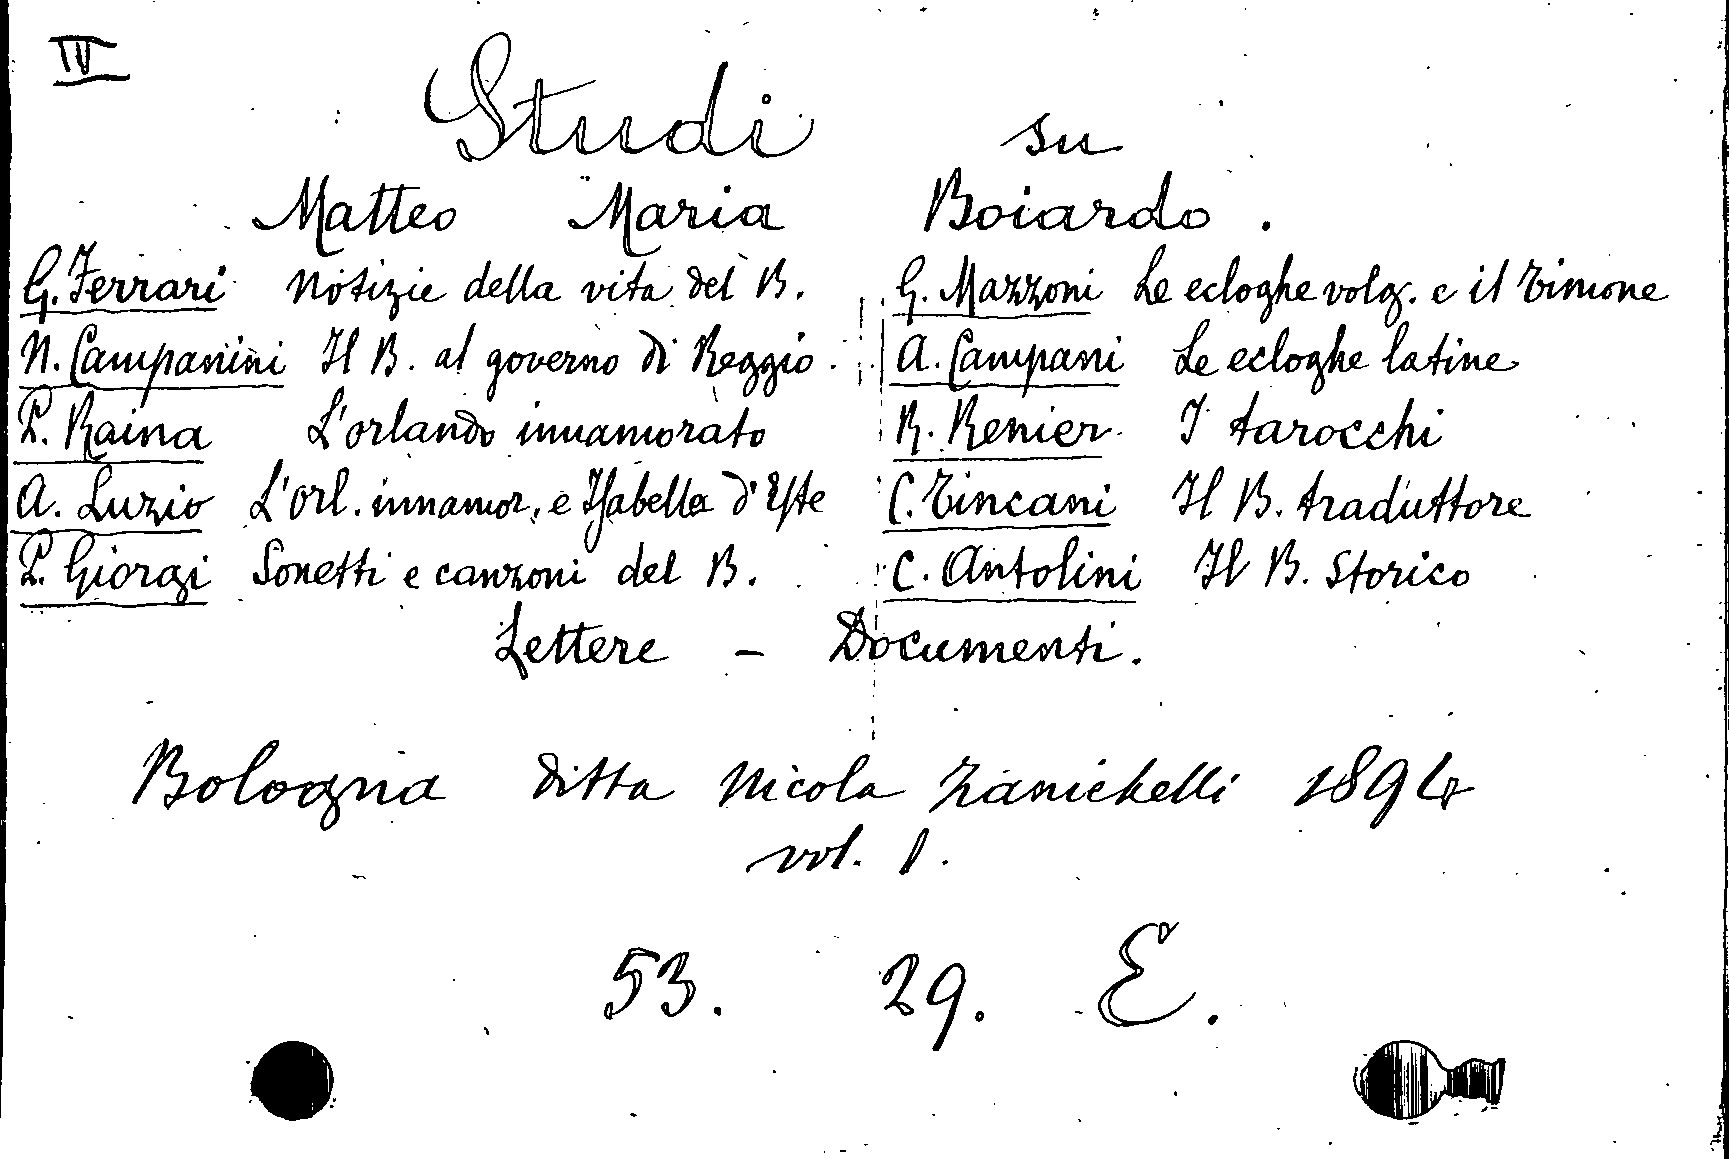 IV
Studi su
Matteo Maria Boiardo.
G. Ferrari Notizie della vita del B.
N. Campanini Il B. al governo di Reggio
P. Raina L'orlando innamorato
A. Luzio L'Orl. innamor. e Isabella d'Este
P. Giorgi Sonetti e canzoni del B.
G. Mazzoni Le ecloghe volg. e il Timone
A. Campani Le ecloghe latine
R. Renier I tarocchi
C. Tincani Il B. traduttore
C. Antolini Il B. Storico
Lettere - Documenti.
Bologna ditta Nicola Zanichelli 1894
vol. 1.
53. 29. E.